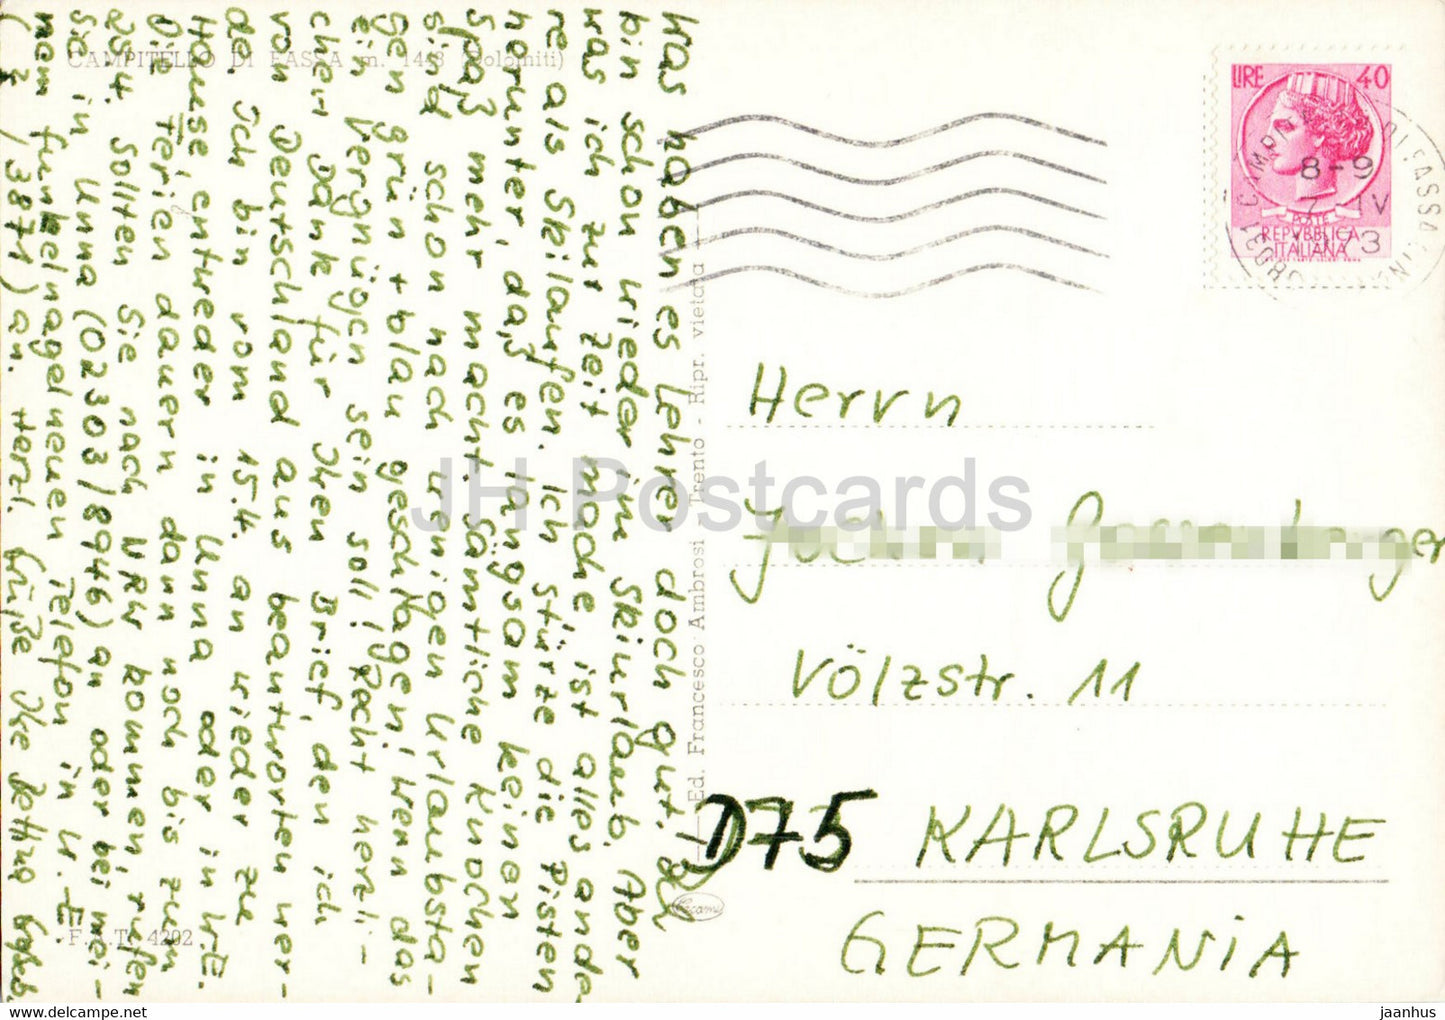 CAMPITELLO DI FASSA m. 1448 (Dolomiti)
Was haben es Lehrer doch gut. Ich
bin schon wieder im Skiurlaub. Aber
was ich zur Zeit mache, ist alles ande-
re als Skilaufen. Ich stürze die Pisten
herunter, daß es langsam keinen
Spaß mehr macht. Sämtliche Knochen
sind schon nach wenigen Urlaubsta-
gen grün + blau geschlagen! Wenn das
ein Vergnügen sein soll! Recht herzli-
chen Dank für Ihren Brief, den ich
von Deutschland aus beantworten wer-
de. Ich bin vom 15.4. an wieder zu
Hause, entweder in Unna oder in W.-E.
Die Ferien dauern dann noch bis zum
29.4. Sollten Sie nach NRW kommen, rufen
Sie in Unna (02303/8946) an oder bei mei-
nem funkelnagelneuen Telefon in W.-E.
( /3871) an. Herzl. Grüße Ihre Bettina
F.A.T. 4202
Ed. Francesco Ambrosi - Trento - Ripr. vietata
Cecami
LIRE 40
POSTE
REPVBBLICA
ITALIANA
8-9
7-IV
Herrn
Jochen
Völzstr. 11
D75 KARLSRUHE
GERMANIA
JH Postcards
www.delcampe.net
jaanhus